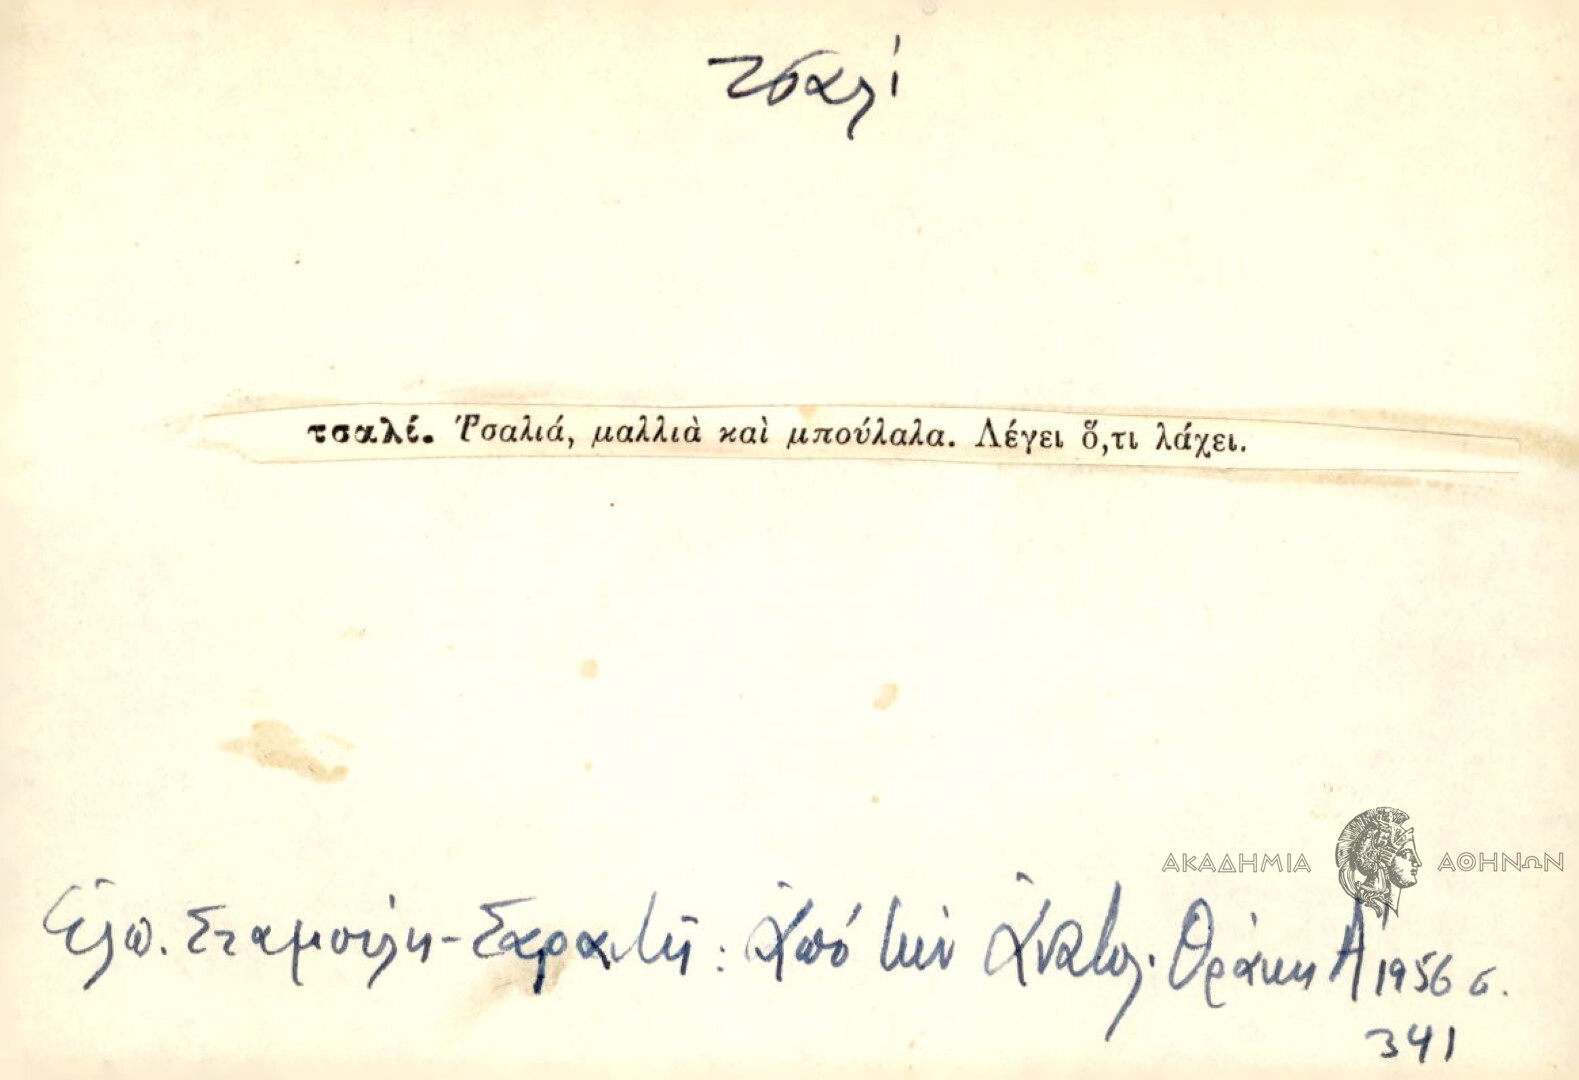 τσαλί
τσαλί. Τσαλιά, μαλλιὰ καὶ μπούλαλα. Λέγει ὅ,τι λάχει.
ΑΚΑΔΗΜΙΑ ΑΘΗΝΩΝ
Ἐλπ. Σταμούλη-Σαραντῆ: Ἀπό τὴν Ἀνατολ. Θράκη Α' 1956 σ.
341